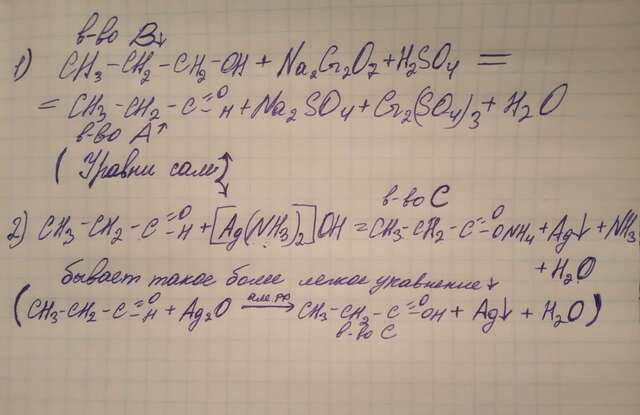 в-во B↓
1) CH3-CH2-CH2-OH + Na2Cr2O7 + H2SO4 =
= CH3-CH2-C=O-H + Na2SO4 + Cr2(SO4)3 + H2O
в-во A↑
(Уравни сам)
в-во C
2) CH3-CH2-C=O-H + [Ag(NH3)2]OH = CH3-CH2-C=O-ONH4 + Ag↓ + NH3
+ H2O
бывает такое более легкое уравнение↓
(CH3-CH2-C=O-H + Ag2O → CH3-CH2-C=O-OH + Ag↓ + H2O)
в-во C